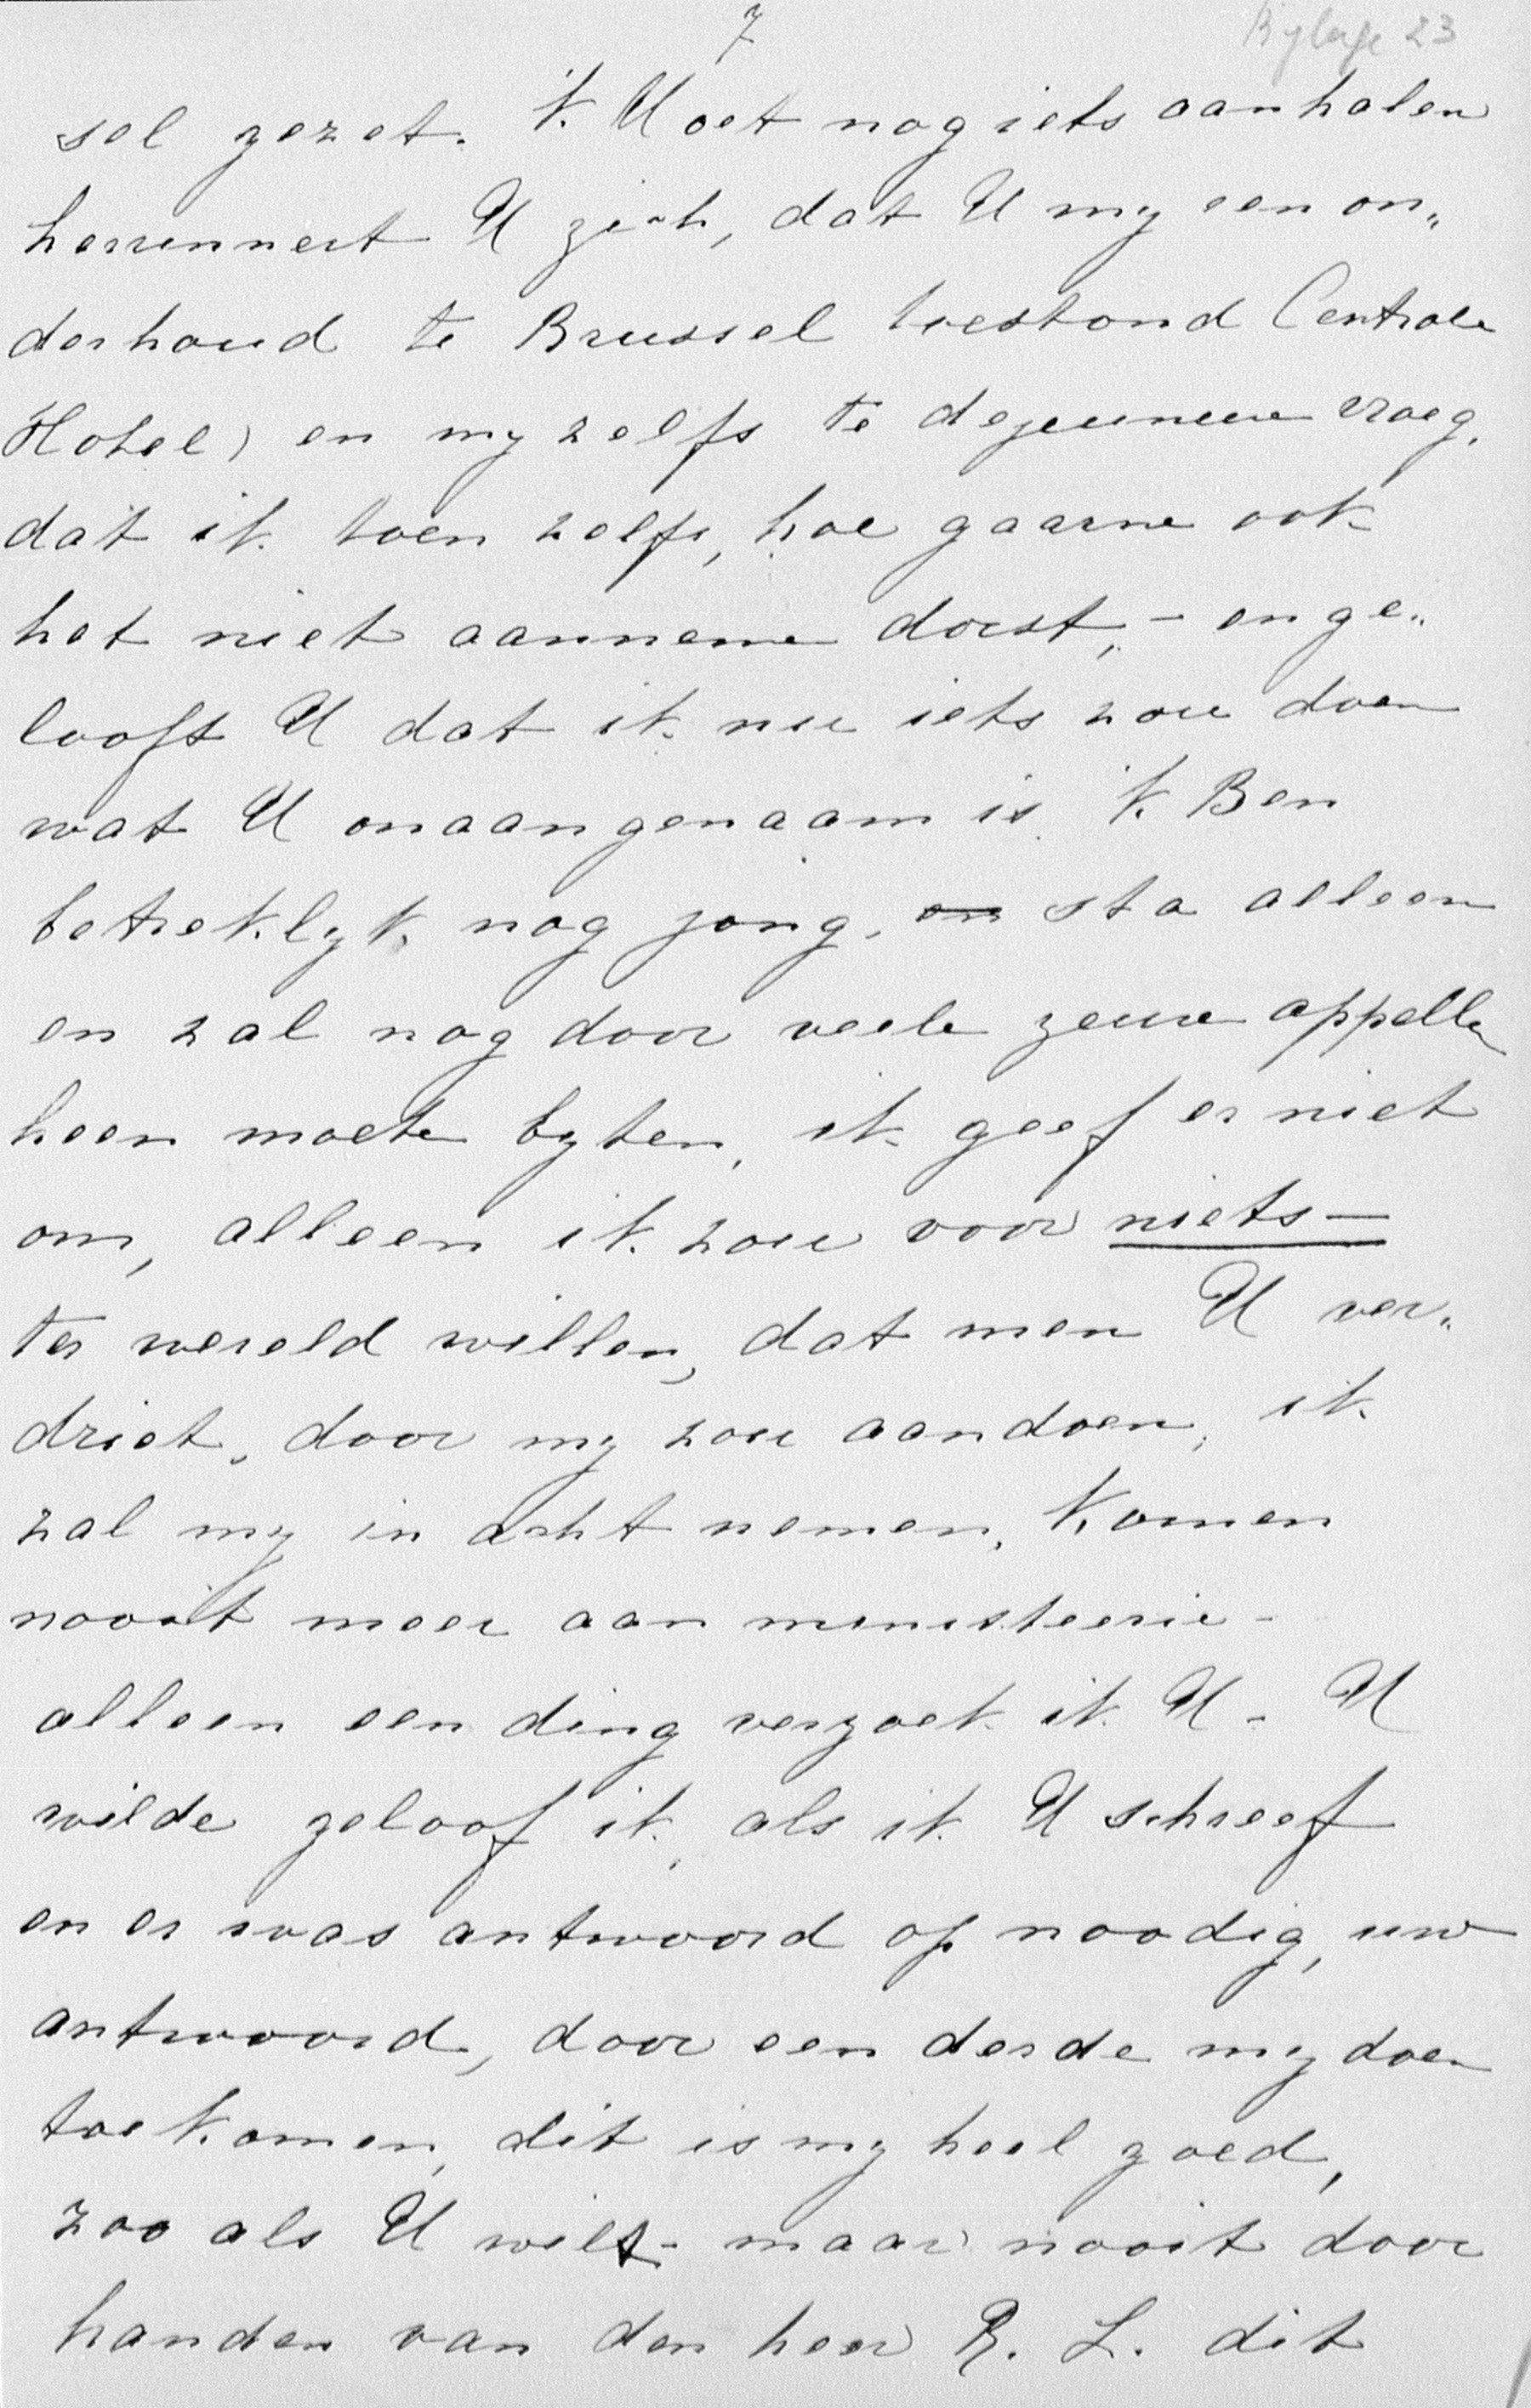 7
Bylage 23
sel gezet. 'k Moet nog iets aanhalen
herrinnert U zich, dat U my een on„
derhoud te Brussel toestond Centrale
Hotel) en my zelfs te dejeuneure vroeg,
dat ik toen zelfs, hoe gaarne ook
het niet aanneme dorst, – en ge„
looft U dat ik nu iets zou doen
wat U onaangenaam is 'k Ben
betreklyk nog jong, en sta alleen
en zal nog door veele zeure appelle
heen moete byten, ik geef er niet
om, alleen ik zou voor niets –
ter wereld willen, dat men U ver„
driet, door my zou aandoen, ik
zal my in acht nemen, komen
nooit meer aan menisteerie –
alleen een ding verzoek ik U – U
wilde geloof ik, als ik U schreef
en er was antwoord op noodig, uw
antwoord, door een derde my doen
toekomen, dit is my heel goed,
zoo als U wilt – maar nooit door
handen van den heer R. L. dit